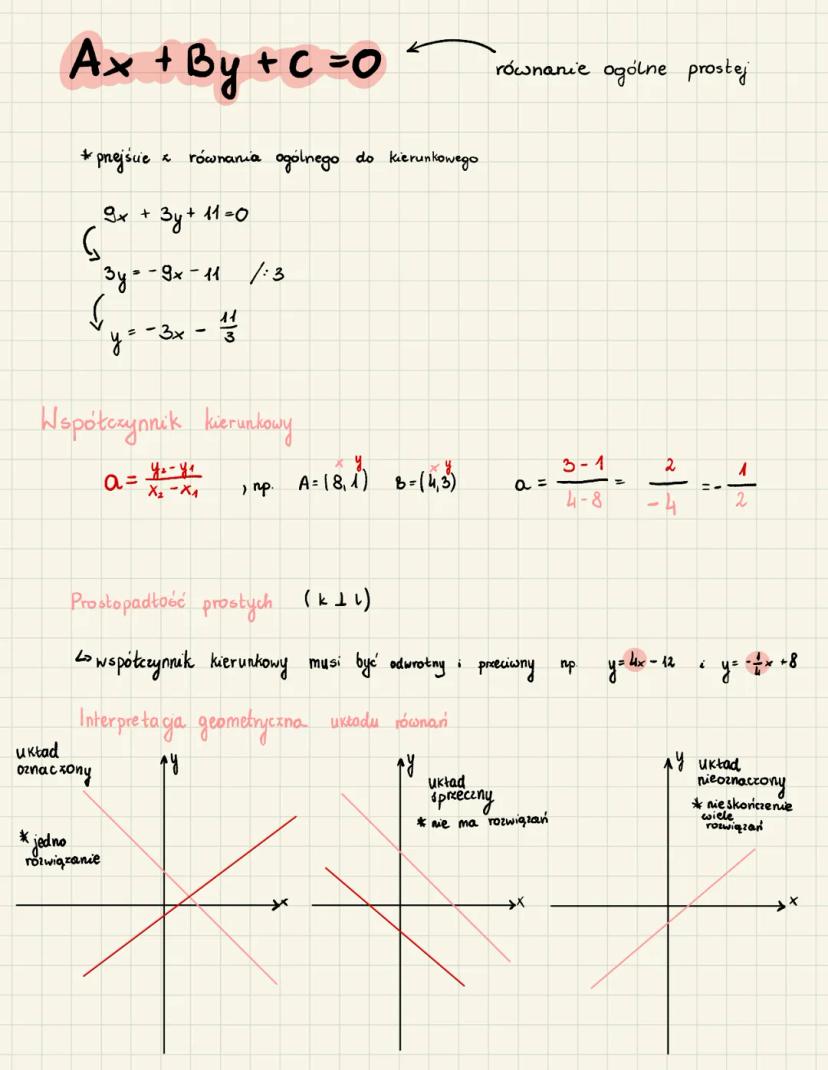 Ax + By + C = 0
równanie ogólne prostej
* przejście z równania ogólnego do kierunkowego
9x + 3y + 11 = 0
3y = -9x - 11 /:3
y = -3x - 11/3
Współczynnik kierunkowy
a = y₂-y₁/x₂-x₁ , np. A=(8,1) B=(4,3) a = 3-1/4-8 = 2/-4 = -1/2
x y x y
Prostopadłość prostych (k ⊥ l)
↳ współczynnik kierunkowy musi być odwrotny i przeciwny np. y=4x-12 i y=-1/4x+8
Interpretacja geometryczna układu równań
układ
oznaczony
* jedno
rozwiązanie
y
x
układ
sprzeczny
* nie ma rozwiązań
y
x
układ
nieoznaczony
* nieskończenie
wiele
rozwiązań
y
x